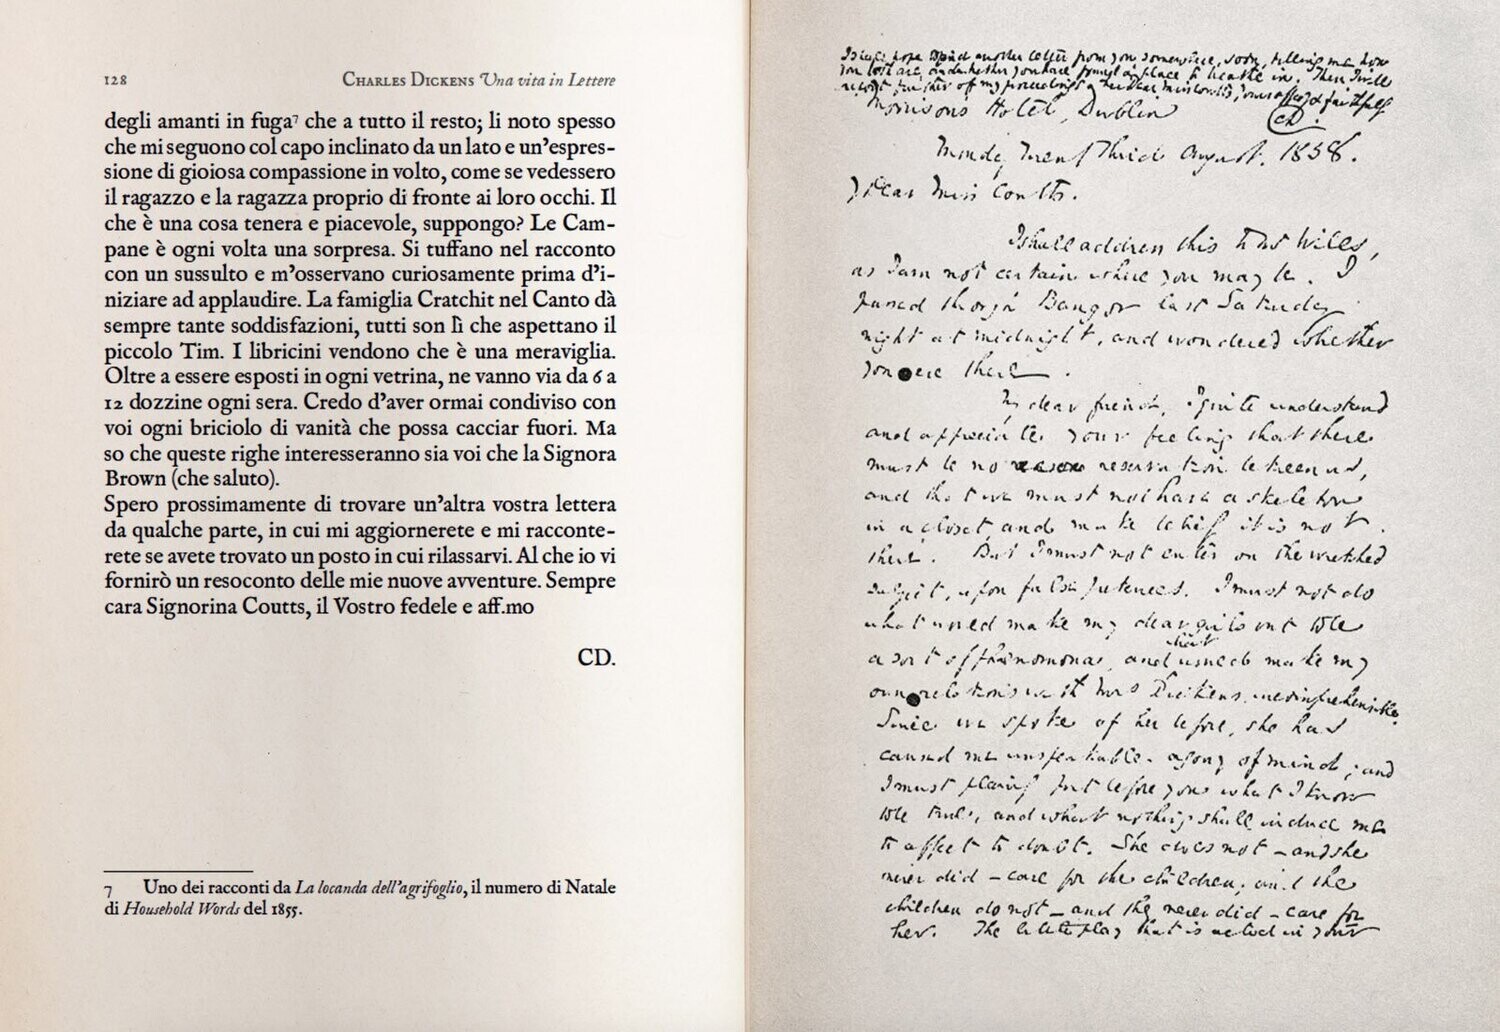 128
CHARLES DICKENS Una vita in Lettere
degli amanti in fuga⁷ che a tutto il resto; li noto spesso
che mi seguono col capo inclinato da un lato e un'espres-
sione di gioiosa compassione in volto, come se vedessero
il ragazzo e la ragazza proprio di fronte ai loro occhi. Il
che è una cosa tenera e piacevole, suppongo? Le Cam-
pane è ogni volta una sorpresa. Si tuffano nel racconto
con un sussulto e m'osservano curiosamente prima d'i-
niziare ad applaudire. La famiglia Cratchit nel Canto dà
sempre tante soddisfazioni, tutti son lì che aspettano il
piccolo Tim. I libricini vendono che è una meraviglia.
Oltre a essere esposti in ogni vetrina, ne vanno via da 6 a
12 dozzine ogni sera. Credo d'aver ormai condiviso con
voi ogni briciolo di vanità che possa cacciar fuori. Ma
so che queste righe interesseranno sia voi che la Signora
Brown (che saluto).
Spero prossimamente di trovare un'altra vostra lettera
da qualche parte, in cui mi aggiornerete e mi racconte-
rete se avete trovato un posto in cui rilassarvi. Al che io vi
fornirò un resoconto delle mie nuove avventure. Sempre
cara Signorina Coutts, il Vostro fedele e aff.mo
CD.
7 Uno dei racconti da La locanda dell'agrifoglio, il numero di Natale
di Household Words del 1855.
I hope another letter from you somewhere, soon, telling me how
you all are, and whether you have found a place to breathe in. Then I will
report further of my proceedings. Ever Dear Miss Coutts, yours affecy & faithfully
CD.
Morrison's Hotel, Dublin
Monday Twenty Third August, 1858.
Dear Miss Coutts.
I shall address this to Mr Wills,
as I am not certain where you may be. I
passed through Bangor last Saturday
night at midnight, and wondered whether
you were there.
My dear friend, I quite understand
and appreciate your feeling that there
must be no reservation between us,
and that we must not have a skeleton
in a closet, and make belief it is not
there. But I must not enter on the wretched
subject, upon false pretences. I must not do
what would make my dear girls out to be
a sort of phænomona, and what would make my
own relations with Mrs Dickens, incomprehensible.
Since we spoke of her before, she has
caused me unspeakable agony of mind; and
I must plainly put before you what I know
to be true, and what nothing shall induce me
to affect to doubt. She does not – and she
never did – care for the children; and the
children do not – and they never did – care for
her. The little play that is acted in your